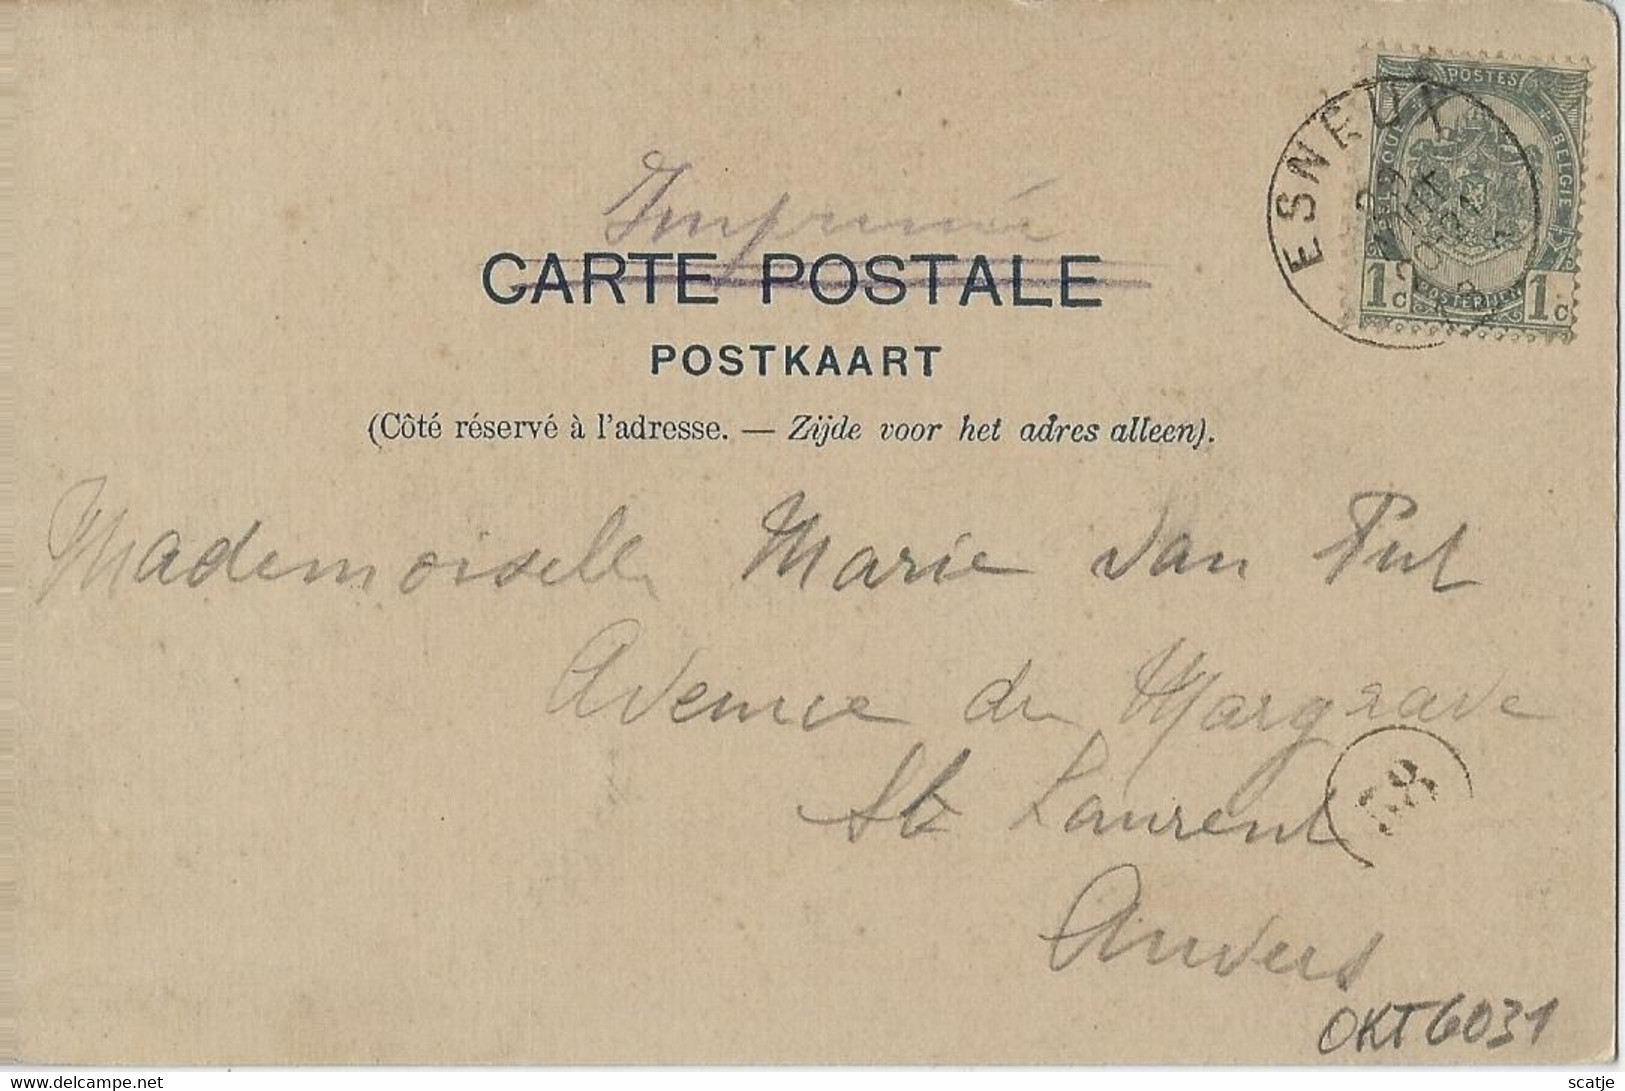 Imprimé
CARTE POSTALE
POSTKAART
(Côté réservé à l'adresse. — Zijde voor het adres alleen).
POSTES
BELGIQUE BELGIE
POSTERIJEN
1c 1c
ESNEUX
29
Mademoiselle Marie Van Put
Avenue du Margrave
St Laurent
Anvers
OKT6031
delcampe.net
scatje